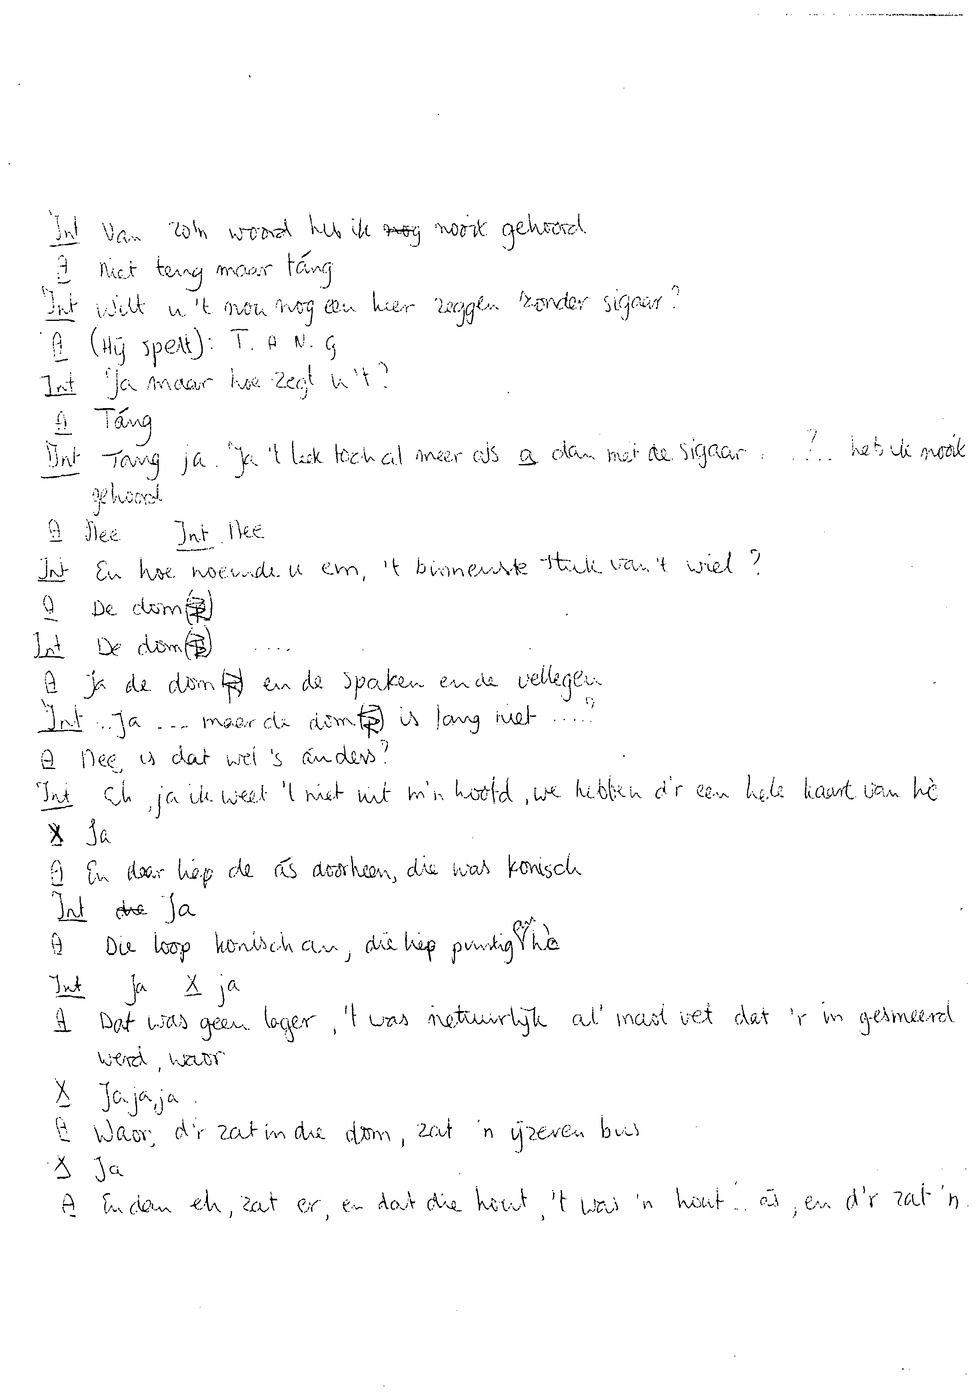 Int Van zo'n woord heb ik nog nooit gehoord
A Niet teng maar táng
Int Wilt u 't nou nog een keer zeggen zonder sigaar?
A (Hij spelt): T. A N. G
Int Ja maar hoe zegt u 't?
A Táng
Int Tang ja. Ja 't leek toch al meer als a dan met de sigaar . ..?.. heb ik nooit
gehoord
A Nee Int Nee
Int En hoe noemde u em, 't binnenste stuk van 't wiel?
A De dom
Int De dom ....
A Ja de dom en de spaken en de vellegen
Int ..Ja ... maar de dom is lang niet ....?
A Nee, is dat wel 's ánders?
Int Eh, ja ik weet 't niet uit m'n hoofd, we hebben d'r een hele kaart van hè
X Ja
A En daar liep de ás doorheen, die was konisch
Int die Ja
A Die loop konisch an, die liep puntig an hè
Int Ja X ja
A Dat was geen lager, 't was netuurlijk al' maol vet dat 'r in gesmeerd
werd, waor
X Ja, ja, ja.
A Waor, d'r zat in die dom, zat 'n ijzeren bus
X Ja
A En dan eh, zat er, en dat die hout, 't was 'n hout... ás, en d'r zat 'n